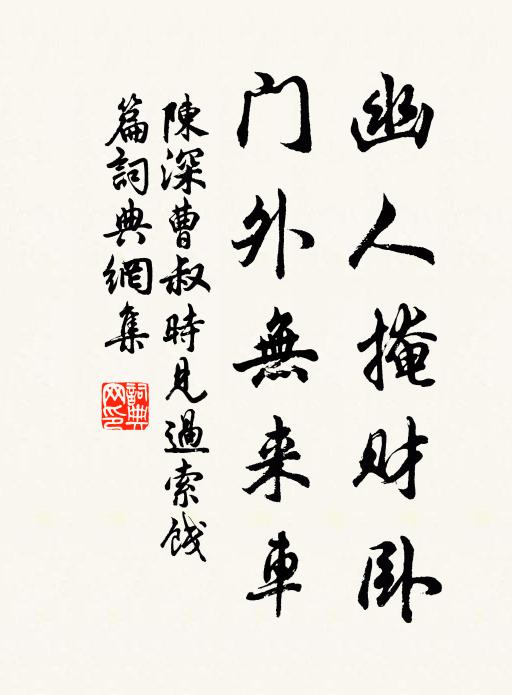 幽人掩财卧
门外無来車
陳深曹叔時見過索餞
篇詞典網集
詞典
网印